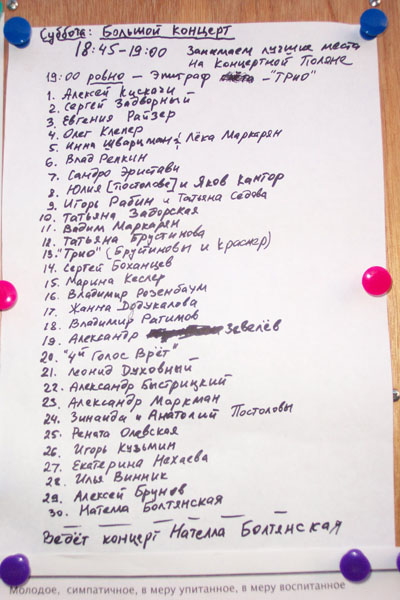 Суббота: Большой концерт
18:45-19:00 Занимаем лучшие места
на концертной Поляне
19:00 ровно - Эпиграф - "Трио"
1. Алексей Кискачи -
2. Сергей Задворный
3. Евгения Райзер
4. Олег Клепер
5. Инна Шварцман и Лёка Маркарян
6. Влад Репкин
7. Сандро Эристави
8. Юлия [Постолове] и Яков Кантор
9. Игорь Рабин и Татьяна Седова
10. Татьяна Заборская
11. Вадим Маркарян
12. Татьяна Брустинова
13. "Трио" (Брустиновы и Краснер)
14. Сергей Боханцев
15. Марина Кеслер
16. Владимир Розенбаум
17. Жанна Додукалова
18. Владимир Ратимов
19. Александр Зевелёв
20. "4й Голос Врёт"
21. Леонид Духовный
22. Александр Быстрицкий
23. Александр Маркман
24. Зинаида и Анатолий Постоловы
25. Рената Олевская
26. Игорь Кузьмин
27. Екатерина Нехаева
28. Илья Винник
29. Алексей Брунов
30. Нателла Болтянская
Ведёт концерт Нателла Болтянская
Молодое, симпатичное, в меру упитанное, в меру воспитанное